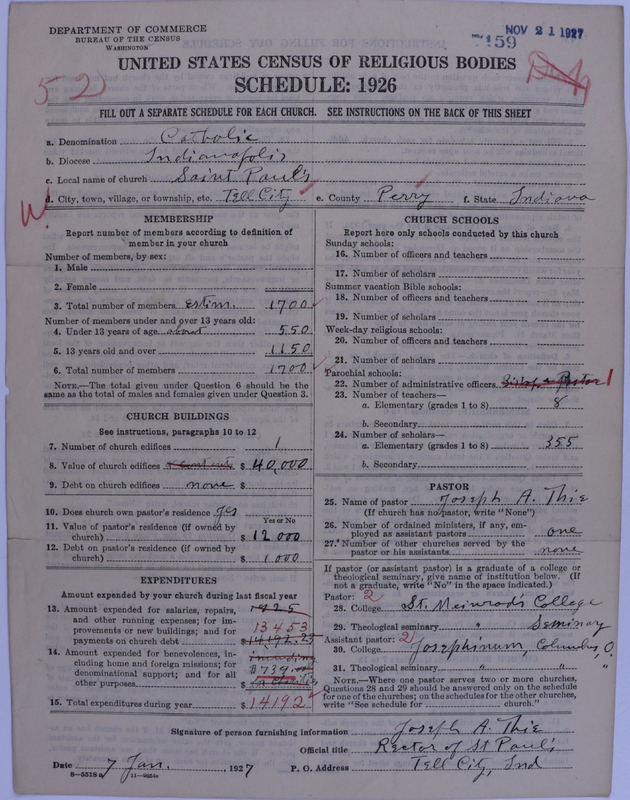 DEPARTMENT OF COMMERCE
BUREAU OF THE CENSUS
WASHINGTON
NOV 21 1927
159
52
UNITED STATES CENSUS OF RELIGIOUS BODIES
SCHEDULE: 1926
FILL OUT A SEPARATE SCHEDULE FOR EACH CHURCH. SEE INSTRUCTIONS ON THE BACK OF THIS SHEET
a. Denomination Catholic
b. Diocese Indianapolis
c. Local name of church Saint Paul's
d. City, town, village, or township, etc. Tell City e. County Perry f. State Indiana
W.
MEMBERSHIP
Report number of members according to definition of
member in your church
Number of members, by sex:
1. Male
2. Female
3. Total number of members estim. 1700
Number of members under and over 13 years old:
4. Under 13 years of age about 550
5. 13 years old and over 1150
6. Total number of members 1700
NOTE.—The total given under Question 6 should be the
same as the total of males and females given under Question 3.
CHURCH BUILDINGS
See instructions, paragraphs 10 to 12
7. Number of church edifices 1
8. Value of church edifices $ 40,000
9. Debt on church edifices none $
10. Does church own pastor's residence yes
Yes or No
11. Value of pastor's residence (if owned by
church) $ 12 000
12. Debt on pastor's residence (if owned by
church) $ 1 000
EXPENDITURES
Amount expended by your church during last fiscal year
13. Amount expended for salaries, repairs,
and other running expenses; for im-
provements or new buildings; and for
payments on church debt 13453 $
14. Amount expended for benevolences, in-
cluding home and foreign missions; for
denominational support; and for all
other purposes including $739
15. Total expenditures during year $ 14192
CHURCH SCHOOLS
Report here only schools conducted by this church
Sunday schools:
16. Number of officers and teachers
17. Number of scholars
Summer vacation Bible schools:
18. Number of officers and teachers
19. Number of scholars
Week-day religious schools:
20. Number of officers and teachers
21. Number of scholars
Parochial schools:
22. Number of administrative officers Bishop & Pastor 1
23. Number of teachers—
a. Elementary (grades 1 to 8) 8
b. Secondary
24. Number of scholars—
a. Elementary (grades 1 to 8) 355
b. Secondary
PASTOR
25. Name of pastor Joseph A. Thie
(If church has no pastor, write "None")
26. Number of ordained ministers, if any, em-
ployed as assistant pastors one
27. Number of other churches served by the
pastor or his assistants none
If pastor (or assistant pastor) is a graduate of a college or
theological seminary, give name of institution below. (If
not a graduate, write "No" in the space indicated.)
Pastor: 2
28. College St. Meinrad's College
29. Theological seminary " Seminary
Assistant pastor: 2
30. College Josephinum, Columbus, O.
31. Theological seminary " " "
NOTE.—Where one pastor serves two or more churches,
Questions 28 and 29 should be answered only on the schedule
for one of the churches; on the schedules for the other churches,
write "See schedule for church."
Signature of person furnishing information Joseph A. Thie
Official title Rector of St Paul's
Date 7 Jan. 1927 P. O. Address Tell City, Ind